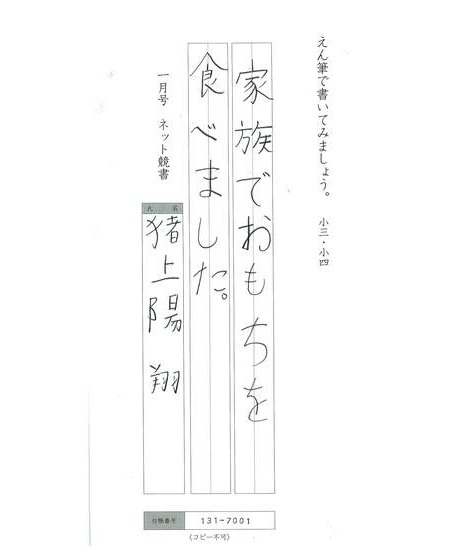 えん筆で書いてみましょう。 小三・小四
家族でおもちを
食べました。
一月号 ネット競書
氏名
猪上陽翔
台帳番号 131-7001
(コピー不可)